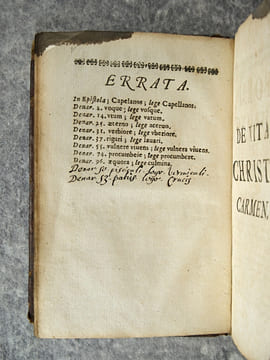 ERRATA.
In Epistola; Capelanus; lege Capellanos.
Denar. 2. voque; lege vosque.
Denar. 14. veum; lege varum.
Denar. 25. æterno; lege acerno.
Denar. 31. verbiore; lege vberiore.
Denar. 57. riguri; lege iauari.
Denar. 55. vulnere viuens; lege vulnera viuens.
Denar. 74. procumbeir; lege procumbere.
Denar. 96. æquora; lege culmina.
Denar 50 pisciculi. lege verniculi.
Denar 53. patris lege Crucis
DE VITA
CHRIST
CARMEN,